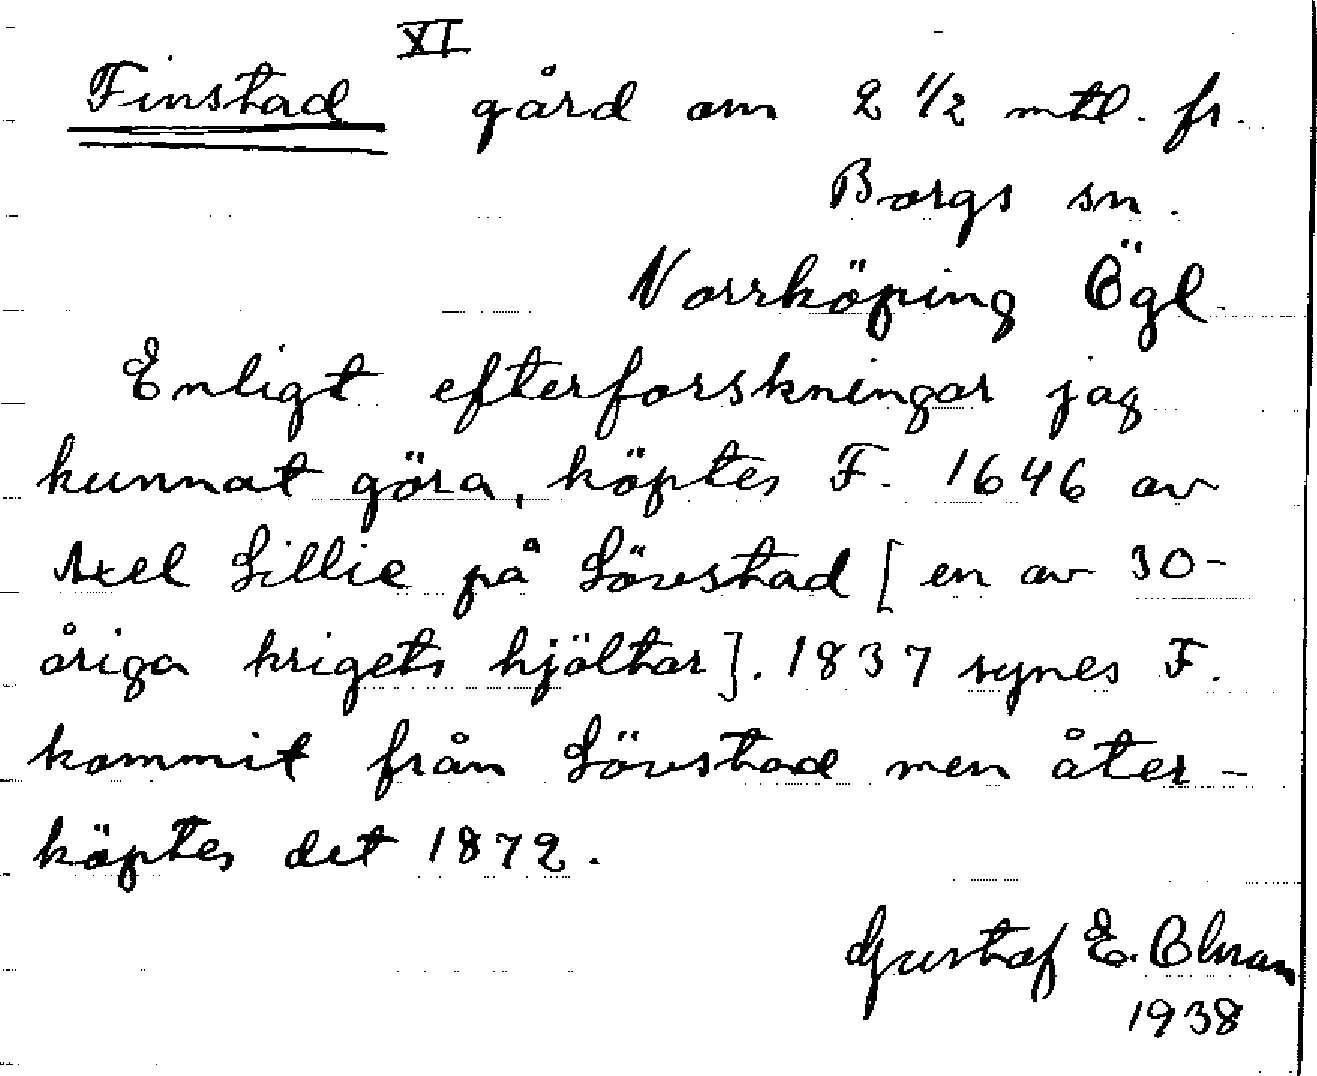 XI
Finstad gård om 2 1/2 mtl. fr.
Borgs sn.
Norrköping Ögl.
Enligt efterforskningar jag
kunnat göra, köptes F. 1646 av
Axel Lillie på Lövstad [en av 30-
åriga krigets hjältar]. 1837 synes F.
kommit från Lövstad men åter-
köptes det 1872.
Gustaf E.
1938